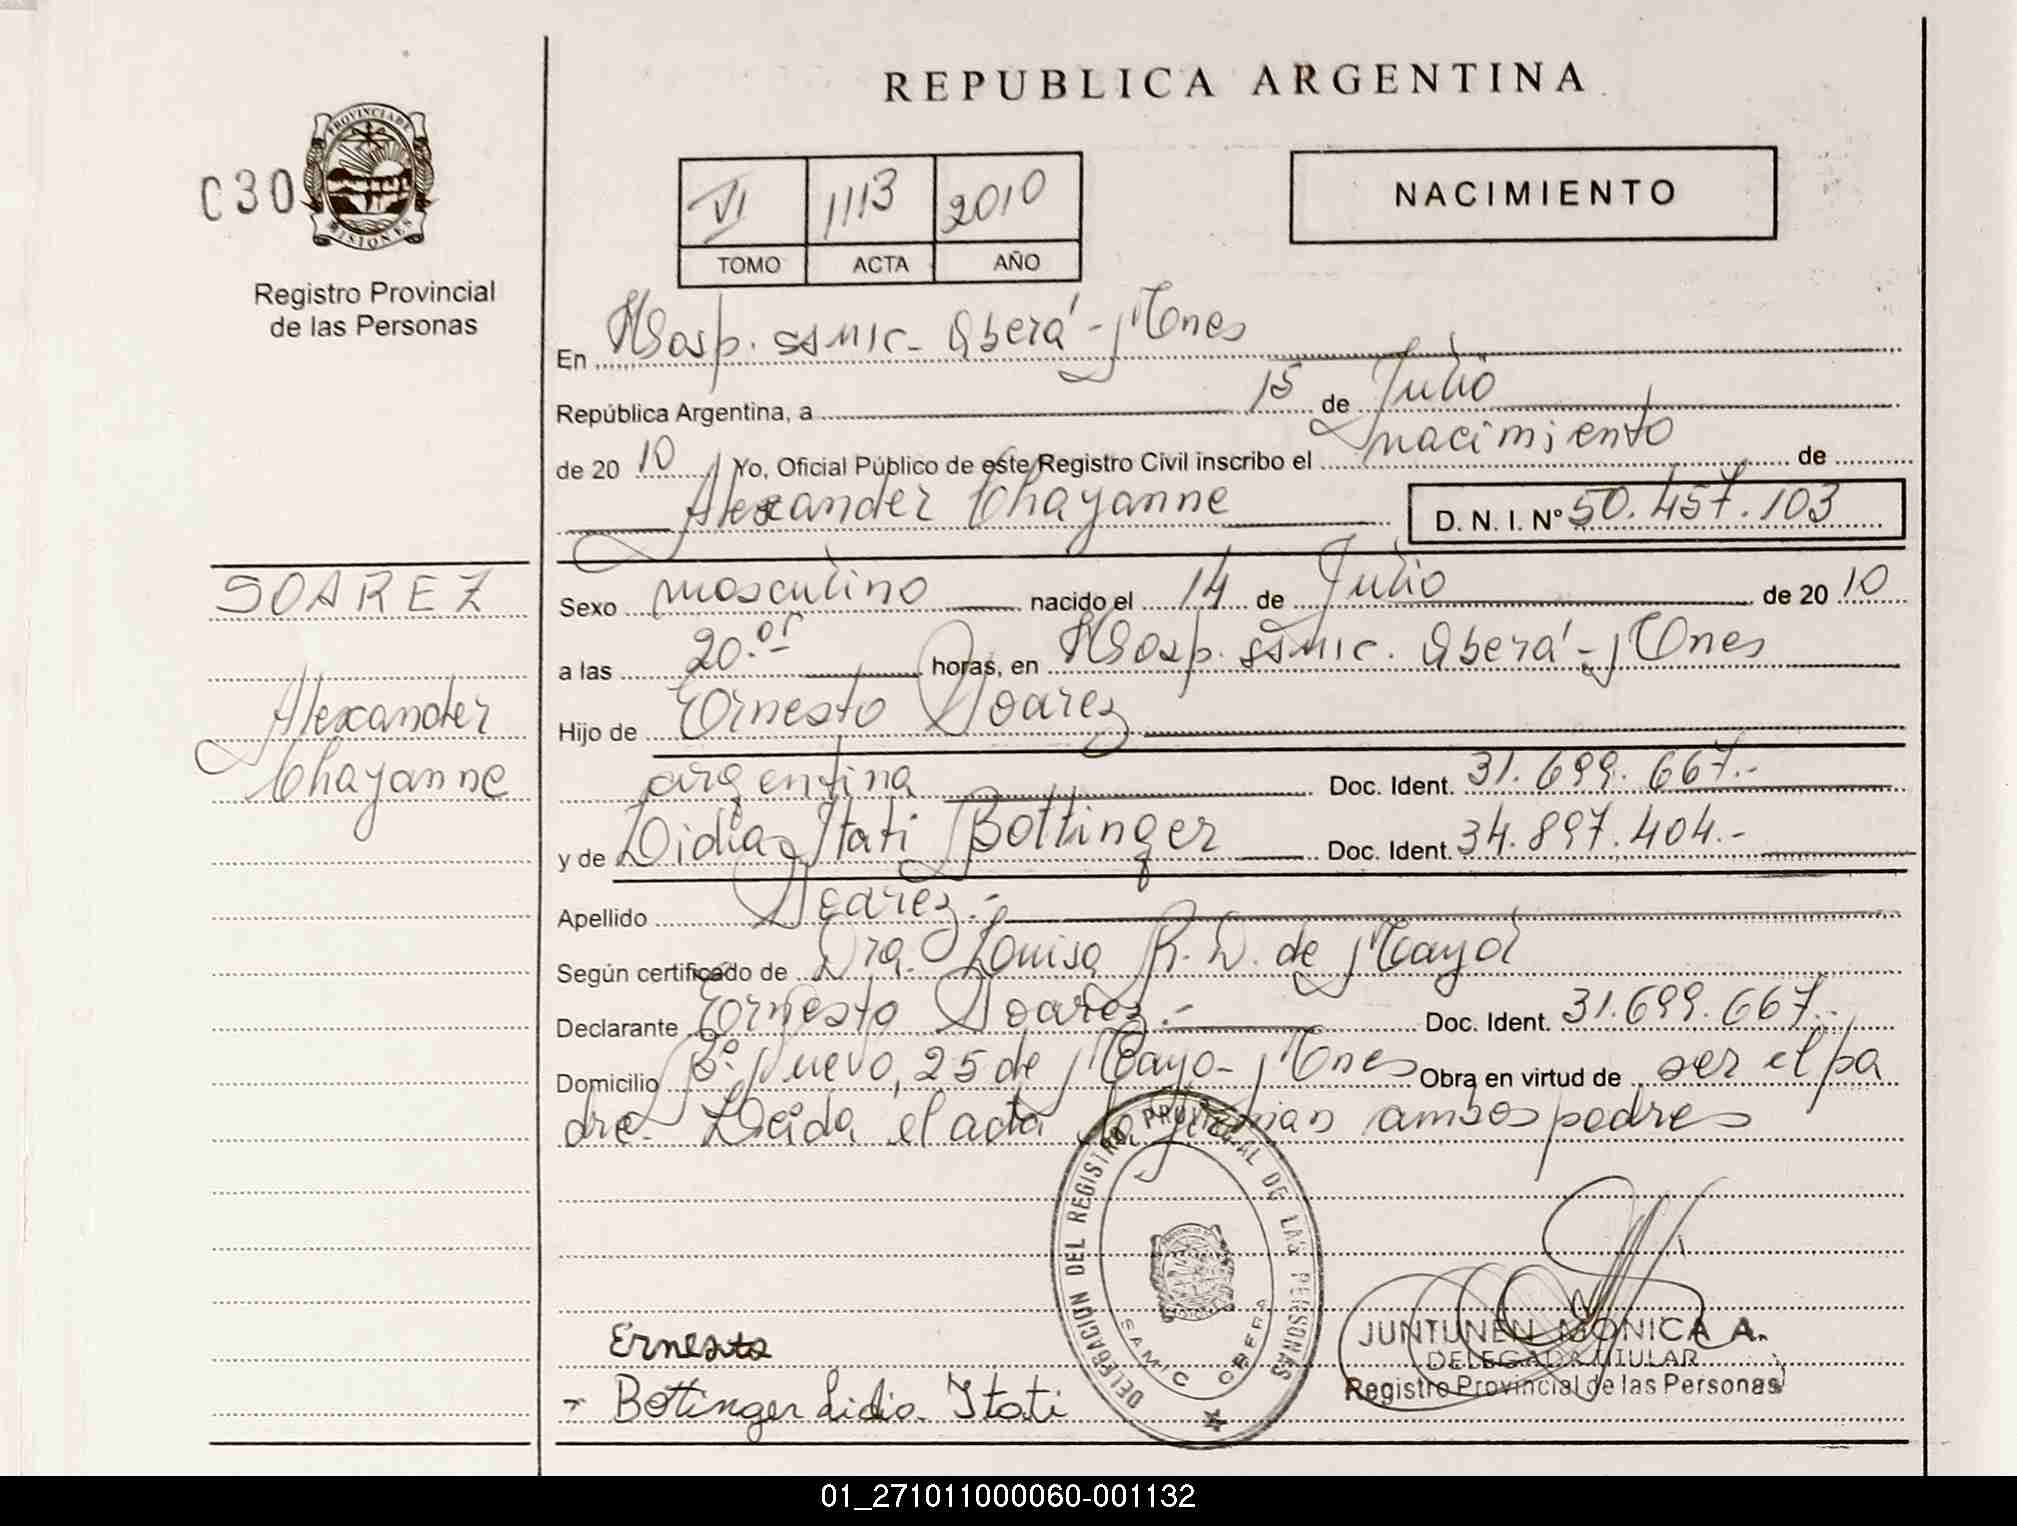 REPUBLICA ARGENTINA
C30
PROVINCIA DE
MISIONES
Registro Provincial
de las Personas
VI 1113 2010
TOMO ACTA AÑO
NACIMIENTO
En Hosp. SAMIC - Oberá - Mnes
República Argentina, a 15 de Julio
de 20 10 Yo, Oficial Público de este Registro Civil inscribo el nacimiento de
Alexander Chayanne D. N. I. Nº 50.457.103
SOAREZ
Alexander
Chayanne
Sexo masculino nacido el 14 de Julio de 20 10
a las 20. horas, en Hosp. SAMIC. Oberá - Mnes
Hijo de Ernesto Soarez
argentina Doc. Ident. 31.699.667.-
y de Lidia Itati Bottinger Doc. Ident. 34.897.404.-
Apellido Soarez.-
Según certificado de Dra. Louisa R. D. de Mayol
Declarante Ernesto Soarez.- Doc. Ident. 31.699.667.-
Domicilio Bº Nuevo, 25 de Mayo - Mnes Obra en virtud de ser el pa
dre. Leida el acta la firman ambos padres
DELEGACION DEL REGISTRO PROVINCIAL DE LAS PERSONAS
SAMIC OBERA
Ernesto
- Bottinger Lidia Itati
JUNTUNEN MONICA A.
DELEGADA TITULAR
Registro Provincial de las Personas
01_271011000060-001132